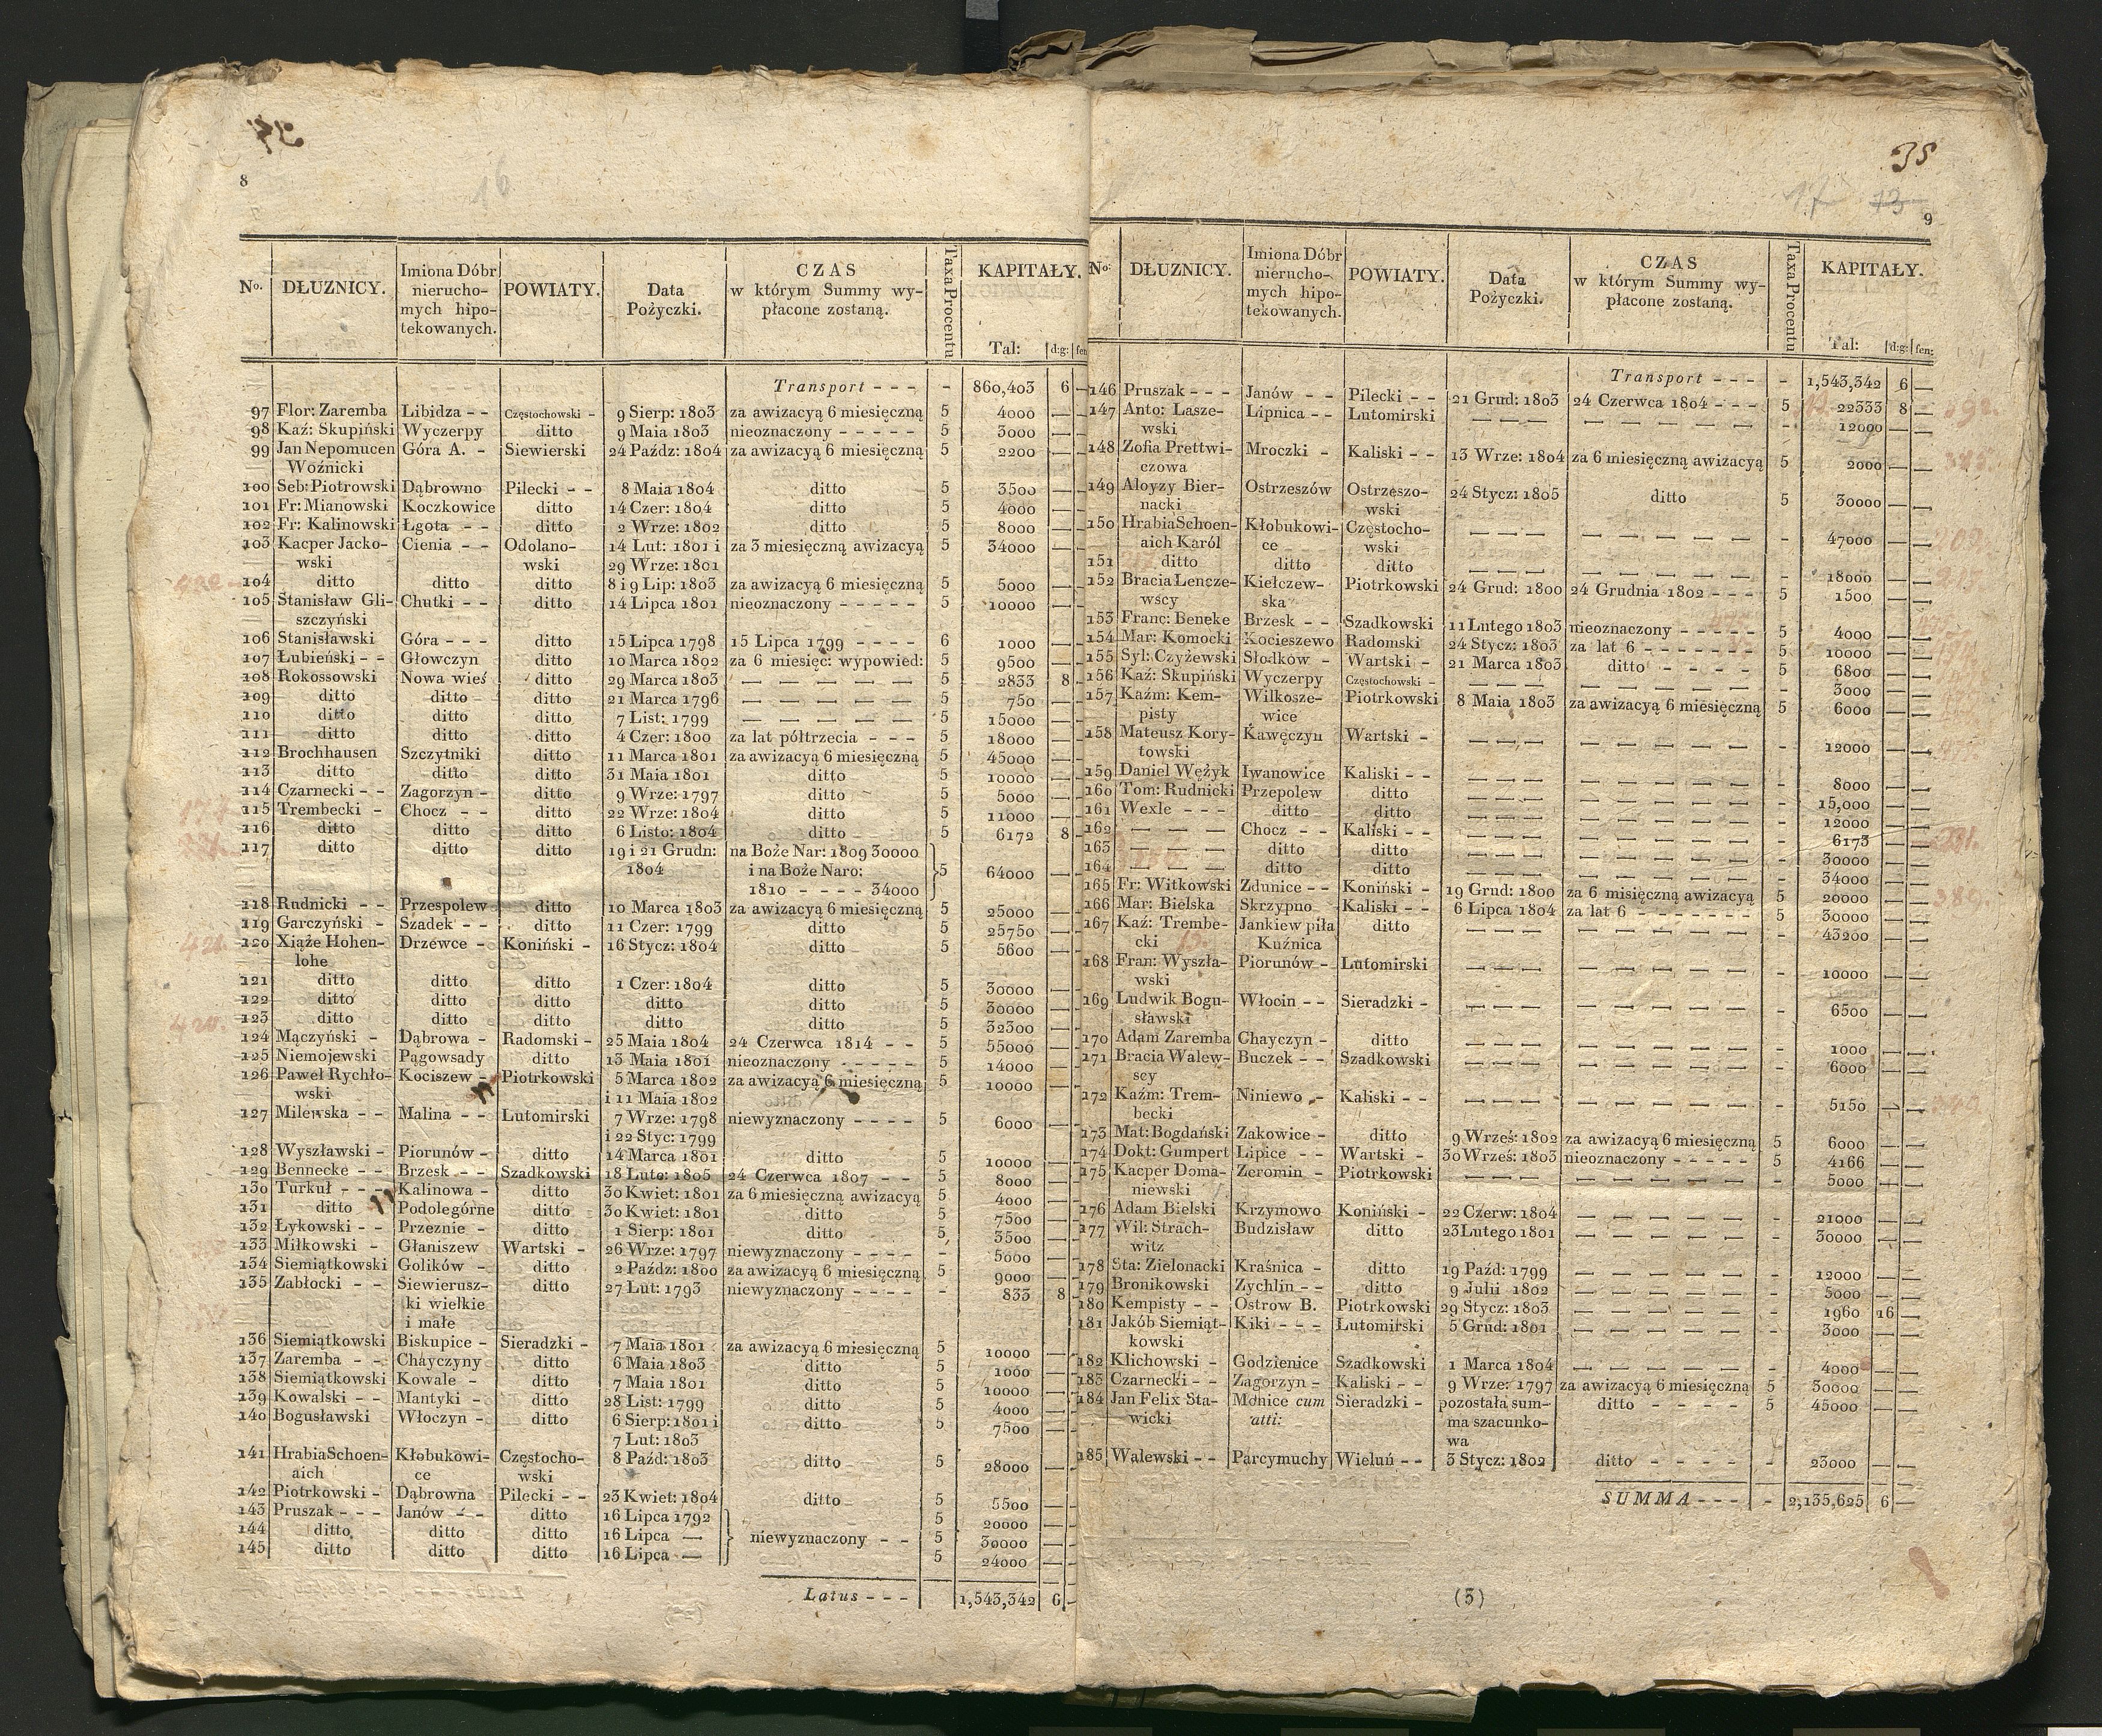 34
8
16
No. DŁUZNICY. Imiona Dóbr nierucho- mych hipo- tekowanych. POWIATY. Data Pożyczki. CZAS w którym Summy wy- płacone zostaną. Taxa Procentu KAPITAŁY. Tal: d:g: fen
Transport - - - - 860,403 6 —
97 Flor: Zaremba Libidza - - Częstochowski - 9 Sierp: 1803 za awizacyą 6 miesięczną 5 4000 —
98 Kaź: Skupiński Wyczerpy ditto 9 Maia 1803 nieoznaczony - - - - - 5 3000 —
99 Jan Nepomucen Góra A. - Siewierski 24 Paźdz: 1804 za awizacyą 6 miesięczną 5 2200 —
Woźnicki
100 Seb: Piotrowski Dąbrowno Pilecki - - 8 Maia 1804 ditto 5 3500 —
101 Fr: Mianowski Koczkowice ditto 14 Czer: 1804 ditto 5 4000 —
102 Fr: Kalinowski Łgota - - ditto 2 Wrze: 1802 ditto 5 8000 —
103 Kacper Jacko- Cienia - - Odolano- 14 Lut: 1801 i za 3 miesięczną awizacyą 5 34000 —
wski wski 29 Wrze: 1801
104 ditto ditto ditto 8 i 9 Lip: 1803 za awizacyą 6 miesięczną 5 5000 —
105 Stanisław Gli- Chutki - - ditto 14 Lipca 1801 nieoznaczony - - - - - 5 10000 —
szczyński
106 Stanisławski Góra - - - ditto 15 Lipca 1798 15 Lipca 1799 - - - - 6 1000 —
107 Łubieński - - Głowczyn ditto 10 Marca 1802 za 6 miesięc: wypowied: 5 9500 —
108 Rokossowski Nowa wieś ditto 29 Marca 1803 — — — — — 5 2833 8
109 ditto ditto ditto 21 Marca 1796 — — — — — 5 750 —
110 ditto ditto ditto 7 List: 1799 — — — — — 5 15000 —
111 ditto ditto ditto 4 Czer: 1800 za lat półtrzecia - - - 5 18000 —
112 Brochhausen Szczytniki ditto 11 Marca 1801 za awizacyą 6 miesięczną 5 45000 —
113 ditto ditto ditto 31 Maia 1801 ditto 5 10000 —
114 Czarnecki - - Zagorzyn - ditto 9 Wrze: 1797 ditto 5 5000 —
115 Trembecki - Chocz - - ditto 22 Wrze: 1804 ditto 5 11000 —
116 ditto ditto ditto 6 Listo: 1804 ditto 5 6172 8
117 ditto ditto ditto 19 i 21 Grudn: na Boże Nar: 1809 30000
1804 i na Boże Naro: 5 64000 —
1810 - - - - 34000
118 Rudnicki - - Przespolew ditto 10 Marca 1803 za awizacyą 6 miesięczną 5 25000 —
119 Garczyński - Szadek - - ditto 11 Czer: 1799 ditto 5 25750 —
120 Xiąże Hohen- Drzewce - Koniński - 16 Stycz: 1804 ditto 5 5600 —
lohe
121 ditto ditto ditto 1 Czer: 1804 ditto 5 30000 —
122 ditto ditto ditto ditto ditto 5 30000 —
123 ditto ditto ditto ditto ditto 5 32300 —
124 Mączyński - Dąbrowa - Radomski - 25 Maia 1804 24 Czerwca 1814 - - 5 55000 —
125 Niemojewski Pągowsady ditto 13 Maia 1801 nieoznaczony - - - - 5 14000 —
126 Paweł Rychło- Kociszew - Piotrkowski 5 Marca 1802 za awizacyą 6 miesięczną 5 10000 —
wski i 11 Maia 1802
127 Milewska - - Malina - - Lutomirski 7 Wrze: 1798 niewyznaczony - - - - 5 6000 —
i 22 Styc: 1799
128 Wyszławski - Piorunów - ditto 14 Marca 1801 ditto 5 10000 —
129 Bennecke - - Brzesk - - Szadkowski 18 Luto: 1805 24 Czerwca 1807 - - 5 8000 —
130 Turkuł - - - Kalinowa - ditto 30 Kwiet: 1801 za 6 miesięczną awizacyą 5 4000 —
131 ditto Podolegórne ditto 30 Kwiet: 1801 ditto 5 7500 —
132 Łykowski - - Przeznie - ditto 1 Sierp: 1801 ditto 5 3500 —
133 Miłkowski - Głaniszew Wartski - 26 Wrze: 1797 niewyznaczony - - - - - 5000 —
134 Siemiątkowski Golików - ditto 2 Paźdz: 1800 za awizacyą 6 miesięczną 5 9000 —
135 Zabłocki - - Siewierusz- ditto 27 Lut: 1793 niewyznaczony - - - - - 833 8
ki wielkie
i małe
136 Siemiątkowski Biskupice - Sieradzki - 7 Maia 1801 za awizacyą 6 miesięczną 5 10000 —
137 Zaremba - - Chayczyny ditto 6 Maia 1803 ditto 5 1000 —
138 Siemiątkowski Kowale - ditto 7 Maia 1801 ditto 5 10000 —
139 Kowalski - - Mantyki - ditto 28 List: 1799 ditto 5 4000 —
140 Bogusławski Włoczyn - ditto 6 Sierp: 1801 i ditto 5 7500 —
7 Lut: 1803
141 Hrabia Schoen- Kłobukowi- Częstocho- 8 Paźd: 1803 ditto 5 28000 —
aich ce wski
142 Piotrkowski - Dąbrowna Pilecki - - 23 Kwiet: 1804 ditto 5 5500 —
143 Pruszak - - - Janów - - ditto 16 Lipca 1792 5 20000 —
144 ditto ditto ditto 16 Lipca — niewyznaczony - - 5 30000 —
145 ditto ditto ditto 16 Lipca — 5 24000 —
Latus - - - 1,543,342 6
35
17 13
9
No: DŁUZNICY. Imiona Dóbr nierucho- mych hipo- tekowanych. POWIATY. Data Pożyczki. CZAS w którym Summy wy- płacone zostaną. Taxa Procentu KAPITAŁY. Tal: d:g: fen:
Transport - - - - 1,543,342 6 —
146 Pruszak - - - Janów - - Pilecki - - 21 Grud: 1803 24 Czerwca 1804 - - - 5 22333 8 —
147 Anto: Lasze- Lipnica - - Lutomirski — — — — — — — — - 12000 — —
wski
148 Zofia Prettwi- Mroczki - Kaliski - - 13 Wrze: 1804 za 6 miesięczną awizacyą 5 2000 — —
czowa
149 Aloyzy Bier- Ostrzeszów Ostrzeszo- 24 Stycz: 1805 ditto 5 30000 — —
nacki wski
150 Hrabia Schoen- Kłobukowi- Częstocho- — — — — — — — — - 47000 — —
aich Karól ce wski
151 ditto ditto ditto — — — — — — — — - 18000 — —
152 Bracia Lencze- Kiełczew- Piotrkowski 24 Grud: 1800 24 Grudnia 1802 - - - 5 1500 — —
wscy ska
153 Franc: Beneke Brzesk - - Szadkowski 11 Lutego 1803 nieoznaczony - - - - - 5 4000 — —
154 Mar: Komocki Kocieszewo Radomski 24 Stycz: 1803 za lat 6 - - - - - - 5 10000 — —
155 Syl: Czyżewski Słodków - Wartski - 21 Marca 1803 ditto - - - - - 5 6800 — —
156 Kaź: Skupiński Wyczerpy Częstochowski - — — — — — — — — - 3000 — —
157 Kaźm: Kem- Wilkosze- Piotrkowski 8 Maia 1803 za awizacyą 6 miesięczną 5 6000 — —
pisty wice
158 Mateusz Kory- Kawęczyn Wartski - — — — — — — — — - 12000 — —
towski
159 Daniel Wężyk Iwanowice Kaliski - - — — — — — — — — - 8000 — —
160 Tom: Rudnicki Przepolew ditto — — — — — — — — - 15,000 — —
161 Wexle - - - ditto ditto — — — — — — — — - 12000 — —
162 — — — Chocz - - Kaliski - - — — — — — — — — - 6173 — —
163 — — — ditto ditto — — — — — — — — - 30000 — —
164 — — — ditto ditto — — — — — — — — - 34000 — —
165 Fr: Witkowski Zdunice - - Koniński - 19 Grud: 1800 za 6 misięczną awizacyą 5 20000 — —
166 Mar: Bielska Skrzypno - Kaliski - - 6 Lipca 1804 za lat 6 - - - - - - 5 30000 — —
167 Kaź: Trembe- Jankiew piła ditto — — — — — — — — - 43200 — —
cki Kuźnica
168 Fran: Wyszła- Piorunów - Lutomirski — — — — — — — — - 10000 — —
wski
169 Ludwik Bogu- Włocin - - Sieradzki - — — — — — — — — - 6500 — —
sławski
170 Adam Zaremba Chayczyn - ditto — — — — — — — — - 1000 — —
171 Bracia Walew- Buczek - - Szadkowski — — — — — — — — - 6000 — —
scy
172 Kaźm: Trem- Niniewo - Kaliski - - — — — — — — — — - 5150 — —
becki
173 Mat: Bogdański Zakowice - ditto 9 Wrześ: 1802 za awizacyą 6 miesięczną 5 6000 — —
174 Dokt: Gumpert Lipice - - Wartski - 30 Wrześ: 1803 nieoznaczony - - - - - 5 4166 — —
175 Kacper Doma- Zeromin - Piotrkowski — — — — — — — — - 5000 — —
niewski
176 Adam Bielski Krzymowo Koniński - 22 Czerw: 1804 — — — — — - 21000 — —
177 Wil: Strach- Budzisław ditto 23 Lutego 1801 — — — — — - 30000 — —
witz
178 Sta: Zielonacki Kraśnica - ditto 19 Paźd: 1799 — — — — — - 12000 — —
179 Bronikowski Zychlin - - ditto 9 Julii 1802 — — — — — - 5000 — —
180 Kempisty - - Ostrow B. Piotrkowski 29 Stycz: 1803 — — — — — - 1960 16 —
181 Jakób Siemiąt- Kiki - - - Lutomirski 5 Grud: 1801 — — — — — - 3000 — —
kowski
182 Klichowski - Godzienice Szadkowski 1 Marca 1804 — — — — — - 4000 — —
183 Czarnecki - - Zagorzyn - Kaliski - - 9 Wrze: 1797 za awizacyą 6 miesięczną 5 30000 — —
184 Jan Felix Sta- Monice cum Sieradzki - pozostała sum- ditto - - - - 5 45000 — —
wicki atti: ma szacunko-
wa
185 Walewski - - Parcymuchy Wieluń - - 3 Stycz: 1802 ditto - - - - - 23000 — —
SUMMA - - - - 2,135,625 6 —
(3)